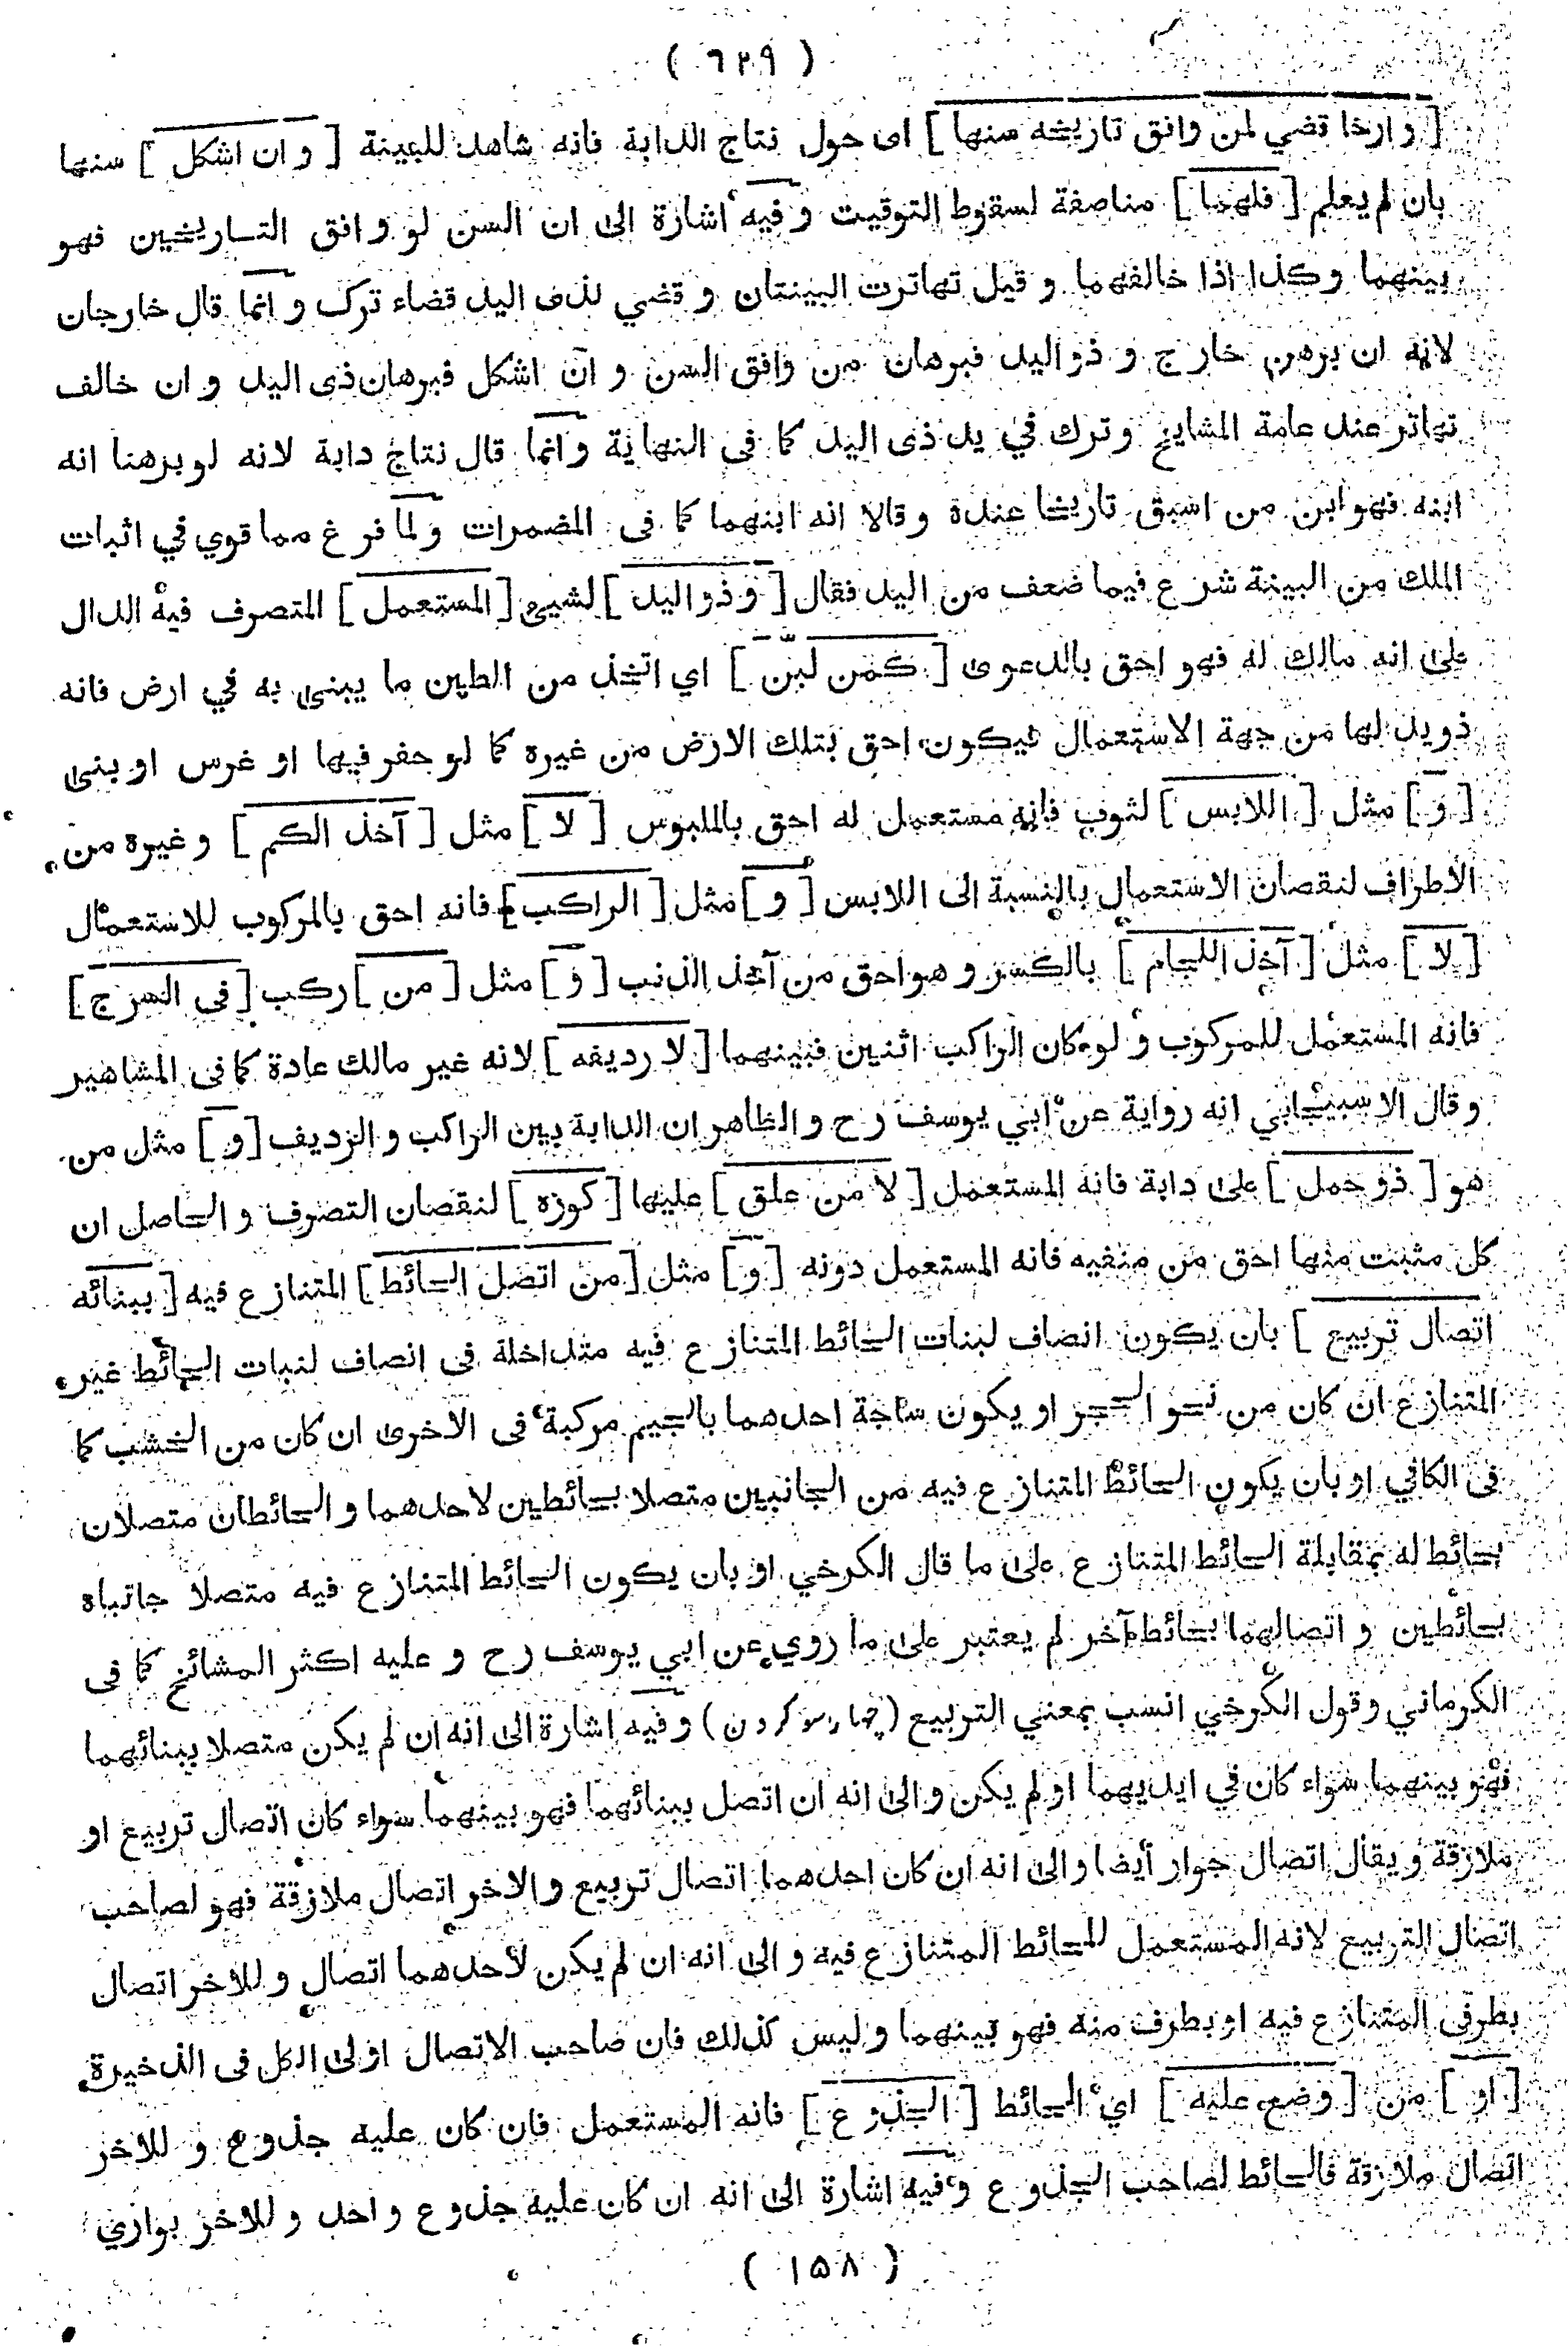 ( ٦٢٩ )
[ و ارخا قضي لمن وافق تاريخه سنها ] اى حول نتاج الدابة فانه شاهد للبينة [ و ان اشكل ] سنها
بان لم يعلم [ فلهما ] مناصفة لسقوط التوقيت وفيه اشارة الى ان السن لو وافق التاريخين فهو
بينهما وكذا اذا خالفهما و قيل تهاترت البينتان و قضي لذى اليد قضاء ترك و انما قال خارجان
لانه ان برهن خارج و ذو اليد فبرهان من وافق السن و ان اشكل فبرهان ذى اليد و ان خالف
تهاتر عند عامة المشايخ وترك في يد ذى اليد كما فى النهاية وانما قال نتاج دابة لانه لو برهنا انه
ابنه فهو ابن من اسبق تاريخا عنده و قالا انه ابنهما كما فى المضمرات ولما فرغ مما قوي في اثبات
الملك من البينة شرع فيما ضعف من اليد فقال [ و ذو اليد ] لشيئ [ المستعمل ] المتصرف فيه الدال
على انه مالك له فهو احق بالدعوى [ كمن لبن ] اي اتخذ من الطين ما يبنى به في ارض فانه
ذو يد لها من جهة الاستعمال فيكون احق بتلك الارض من غيره كما لو حفر فيها او غرس او بنى
[ و ] مثل [ اللابس ] لثوب فانه مستعمل له احق بالملبوس [ لا ] مثل [ آخذ الكم ] و غيره من
الاطراف لنقصان الاستعمال بالنسبة الى اللابس [ و ] مثل [ الراكب ] فانه احق بالمركوب للاستعمال
[ لا ] مثل [ آخذ اللجام ] بالكسر و هو احق من آخذ الذنب [ و ] مثل [ من ] ركب [ فى السرج ]
فانه المستعمل للمركوب و لو كان الراكب اثنين فبينهما [ لا رديفه ] لانه غير مالك عادة كما فى المشاهير
و قال الاسبيجابي انه رواية عن ابي يوسف رح و الظاهر ان الدابة بين الراكب و الرديف [ و ] مثل من
هو [ ذو حمل ] على دابة فانه المستعمل [ لا من علق ] عليها [ كوزه ] لنقصان التصرف و الحاصل ان
كل مثبت منها احق من منفيه فانه المستعمل دونه [ و ] مثل [ من اتصل الحائط ] المتنازع فيه [ ببنائه
اتصال تربيع ] بان يكون انصاف لبنات الحائط المتنازع فيه متداخلة فى انصاف لنبات الحائط غير
المتنازع ان كان من نحو الحجر او يكون ساجة احدهما بالجيم مركبة فى الاخرى ان كان من الخشب كما
فى الكافي او بان يكون الحائط المتنازع فيه من الجانبين متصلا بحائطين لاحدهما و الحائطان متصلان
بحائط له بمقابلة الحائط المتنازع على ما قال الكرخي او بان يكون الحائط المتنازع فيه متصلا جانباه
بحائطين و اتصالهما بحائط آخر لم يعتبر على ما روي عن ابي يوسف رح و عليه اكثر المشائخ كما فى
الكرماني وقول الكرخي انسب بمعنى التربيع ( چهارسو كردن ) وفيه اشارة الى انه ان لم يكن متصلا ببنائهما
فهو بينهما سواء كان في ايديهما او لم يكن و الى انه ان اتصل ببنائهما فهو بينهما سواء كان اتصال تربيع او
ملازقة و يقال اتصال جوار أيضا والى انه ان كان احدهما اتصال تربيع و الاخر اتصال ملازقة فهو لصاحب
اتصال التربيع لانه المستعمل للحائط المتنازع فيه و الى انه ان لم يكن لأحدهما اتصال و للاخر اتصال
بطرفى المتنازع فيه او بطرف منه فهو بينهما و ليس كذلك فان صاحب الاتصال اولى الكل فى الذخيرة
[ او ] من [ وضع عليه ] اي الحائط [ الجذوع ] فانه المستعمل فان كان عليه جذوع و للاخر
اتصال ملازقة فالحائط لصاحب الجذوع وفيه اشارة الى انه ان كان عليه جذوع واحد و للاخر بواري
( ١٥٨ )